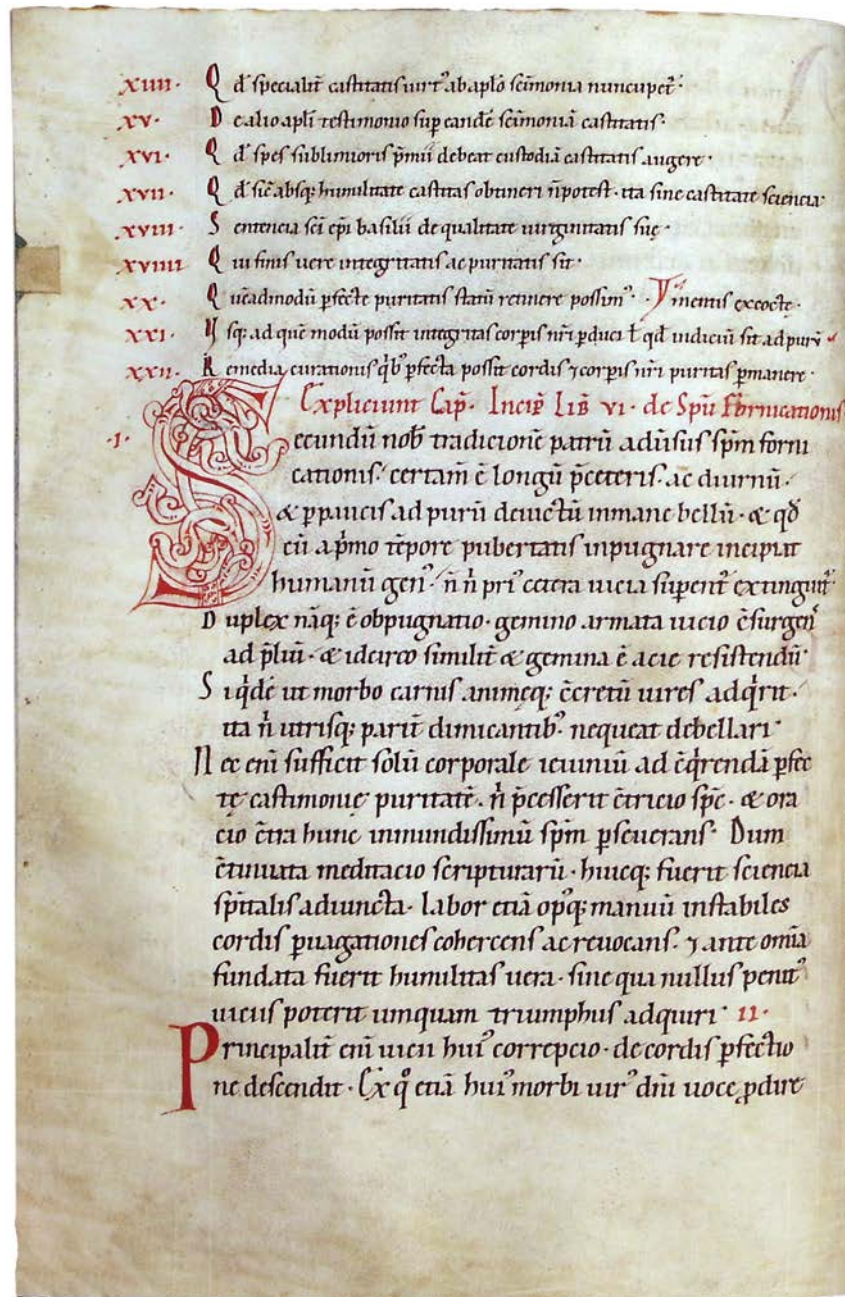 XIIII· Qđ specialit̄ castitatis uirt᾽ ab ap̄lo sc̄imonia nuncupet᷑·
XV· De alio apl̄i testimonio sup̄ eandē sc̄imoniā castitatis·
XVI· Qđ spes sublimioris p̄mii debeat custodiā castitatis augere·
XVII· Qđ sic̄ absq; humilitate castitas obtineri n̄ potest· ita sine castitate sciencia·
XVIII· Sentencia sc̄i ep̄i basilii de qualitate uirginitatis suę·
XVIIII Qui finis uere integritatis ac puritatis sit·
XX· Quēadmodū p̄fectę puritatis statū retinere possim᾽· mentis excocte·
XXI· Usq; ad quē modū possit integritas corp̄is nr̄i p̄duci ł qđ indiciū sit ad purū
XXII· Remedia curationis q̇b᾽ p̄fecta possit cordis ⁊ corp̄is nr̄i puritas p̄manere·
Expliciunt Cap̄· Incip̄ Lib̄ VI· de Sp̄u Fornicationis
·I· Secundū nob̄ tradicionē patrū aduͥsus sp̄m forni
cationis· certam̄ ē longū p̄ ceteris· ac diurnū·
& p̄ paucis ad purū deuictū inmane bellū· & qđ
cū a p̄mo tēpore pubertatis inpugnare incipiat
humanū gen᾽· n̄ n̄ pri᾽ cetera uicia sup̄ent᷑ extinguit᷑·
Duplex nāq; ē obpugnatio· gemino armata uicio ē̄surgenͥ
ad p̄liū· & idcirco similit̄ & gemina ē acie resistendū·
Siq̇dē ut morbo carnis animeq; ē̄cretū uires adq̇rit·
ita nͥ utrisq; parit̄ dimicantib᾽ nequeat debellari·
Nec eni̅ sufficit solū corporale ieiuniū ad ē̄q̇rendā p̄fec
tę castimonię puritatē· nͥ p̄cesserit ē̄tricio sp̄c· & ora
cio ē̄tra hunc inmundissimū sp̄m p̄seuerans· Dum
ē̄tinuata meditacio scripturarū· huicq; fuerit sciencia
sp̄italis adiuncta· labor etiā op᾽q; manuū instabiles
cordis p̄uagationes cohercens ac reuocans· ⁊ ante om̄ia
fundata fuerit humilitas uera· sine qua nullus penit᾽
uicii᾽ poterit umquam triumphus adquiri· II·
Principalit̄ eni̅ uicii hui᾽ correpcio· de cordis p̄fectio
ne descendit· Ex qͦ etiā hui᾽ morbi uir᾽ dn̄i uoce ꝓdire